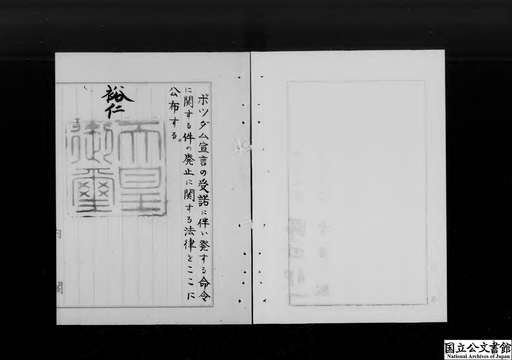 ポツダム宣言の受諾に伴い発する命令
に関する件の廃止に関する法律をここに
公布する。
裕仁
天皇
御璽
内閣
国立公文書館
National Archives of Japan